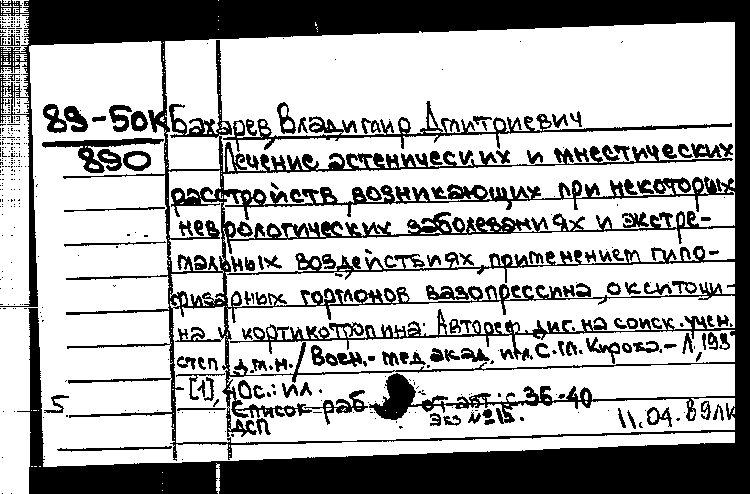 89-50к Бахарев, Владимир Дмитриевич
890 Лечение астенических и мнестических
расстройств, возникающих при некоторых
неврологических заболеваниях и экстре-
мальных воздействиях, применением гипо-
физарных гормонов вазопрессина, окситоци-
на и кортикотропина: Автореф. дис. на соиск. учен.
степ. д.м.н. / Воен.-мед. акад. им. С.М. Кирова. - Л, 198
- [1], 40с.: ил.
5 Список раб от авт: с. 36-40
ДСП Экз №15. 11.04.89